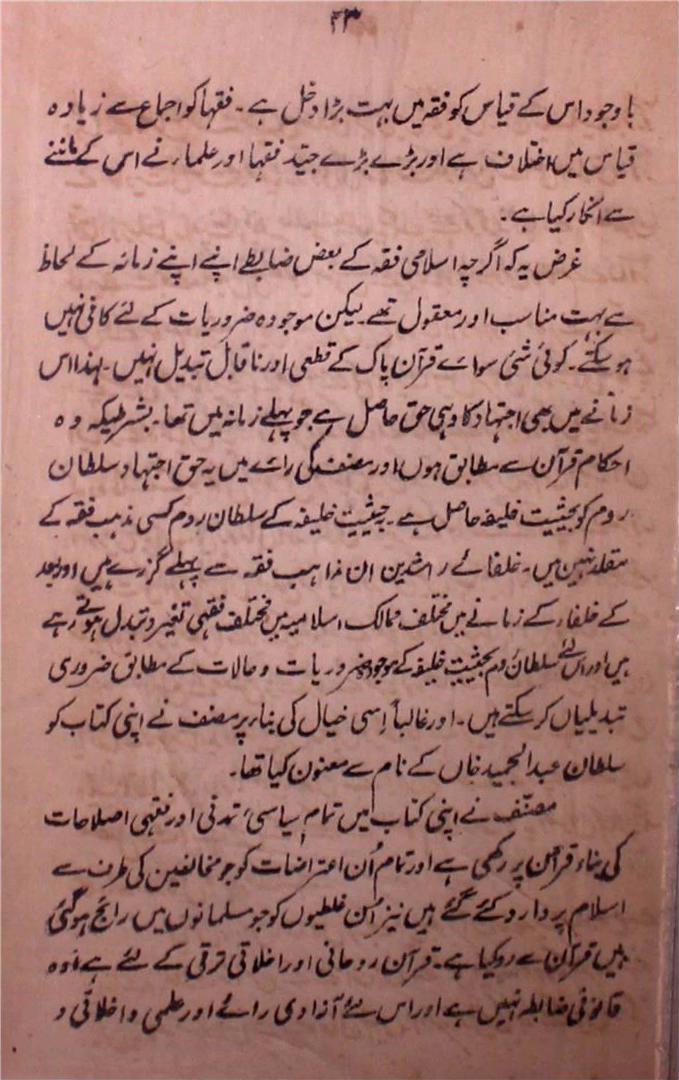 ۲۳
باوجود اس کے قیاس کو فقہ میں بہت بڑا دخل ہے۔ فقہا کو اجماع سے زیادہ
قیاس میں اختلاف ہے اور بڑے بڑے جیّد فقہا اور علماء نے اس کے ماننے
سے انکار کیا ہے۔
غرض یہ کہ اگرچہ اسلامی فقہ کے بعض ضابطے اپنے اپنے زمانہ کے لحاظ
سے بہت مناسب اور معقول تھے۔ لیکن موجودہ ضروریات کے لئے کافی نہیں
ہو سکتے۔ کوئی شئی سوائے قرآن پاک کے قطعی اور ناقابل تبدیل نہیں۔ لہذا اس
زمانے میں بھی اجتہاد کا وہی حق حاصل ہے جو پہلے زمانہ میں تھا۔ بشرطیکہ وہ
احکام قرآن سے مطابق ہوں اور مصنف کی رائے میں یہ حق اجتہاد سلطان
روم کو بحیثیت خلیفہ حاصل ہے۔ بحیثیت خلیفہ کے سلطان روم کسی مذہب فقہ کے
مقلد نہین ہیں۔ خلفائے راشدین ان مذاہب فقہ سے پہلے گزرے ہیں اور بعد
کے خلفاء کے زمانے میں مختلف ممالک اسلامیہ میں مختلف فقہی تغیر و تبدل ہوتے رہے
ہیں اور اس لئے سلطان روم بحیثیت خلیفہ کے موجودہ ضروریات و حالات کے مطابق ضروری
تبدیلیاں کر سکتے ہیں۔ اور غالباً اِسی خیال کی بناء پر مصنف نے اپنی کتاب کو
سلطان عبد الحمید خاں کے نام سے معنون کیا تھا۔
مصنّف نے اپنی کتاب میں تمام سیاسی، تمدنی اور فقہی اصلاحات
کی بناء قرآن پر رکھی ہے اور تمام اُن اعتراضات کو جو مخالفین کی طرف سے
اسلام پر وارد کئے گئے ہیں نیز اُن غلطیوں کو جو مسلمانوں میں رائج ہو گئی
ہیں قرآن سے رد کیا ہے۔ قرآن روحانی اور اخلاقی ترقی کے لئے ہے، وہ
قانونی ضابطہ نہیں ہے اور اس لئے آزادی رائے اور علمی و اخلاقی و